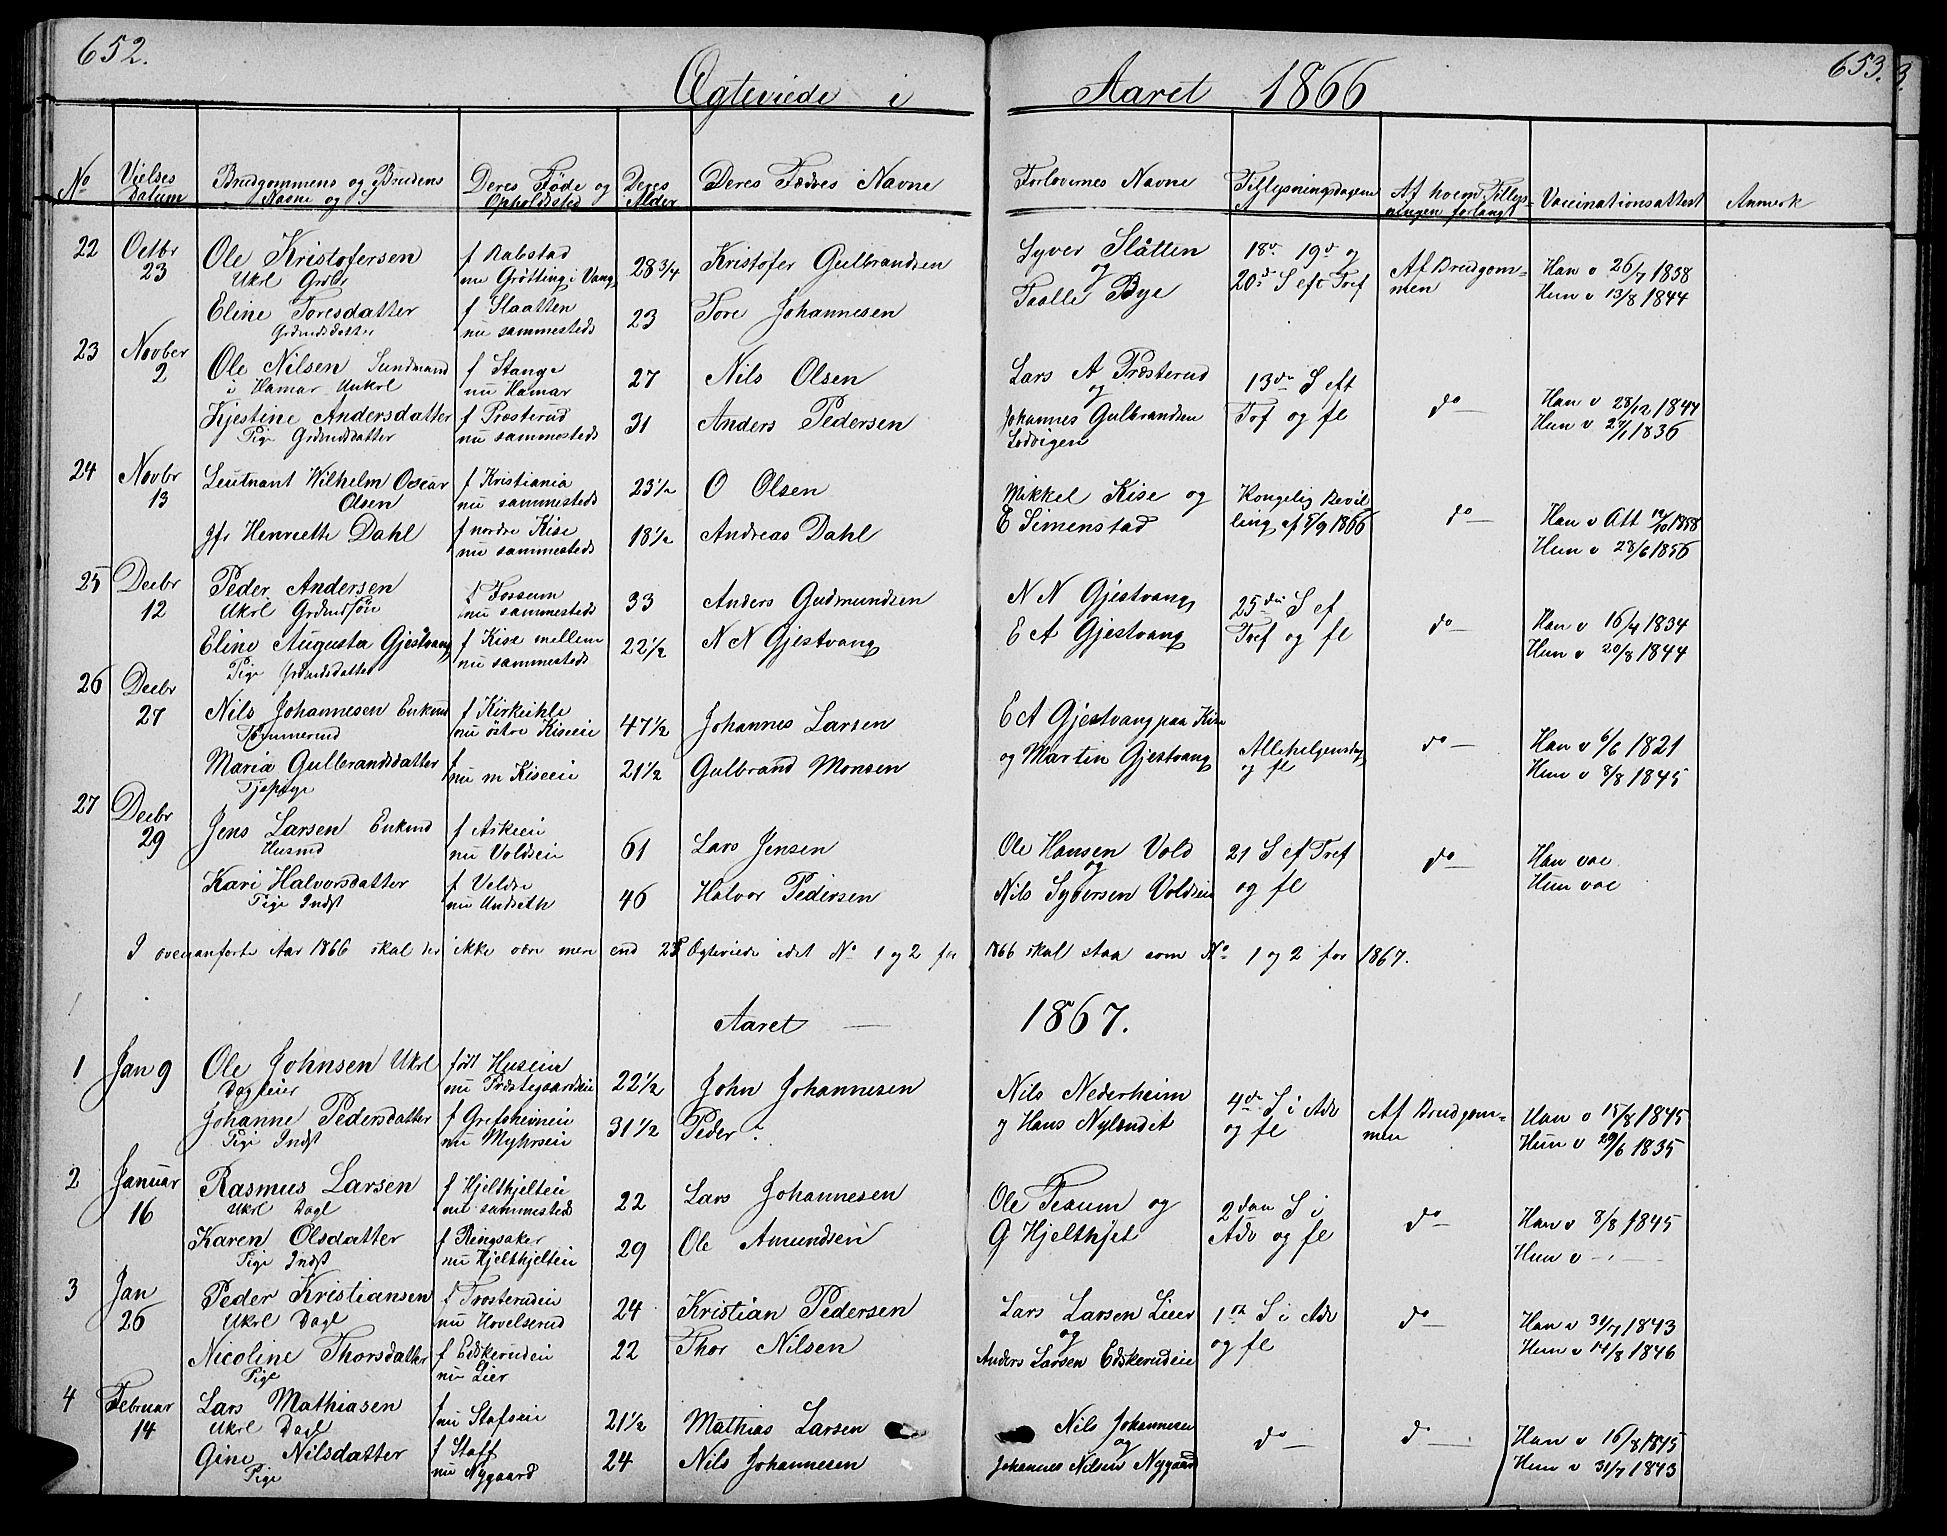 652.
653.
Ægteviede i Aaret 1866
No
Vielses Datum
Brudgommens og Brudens Navne og
Deres Føde og Opholdsted
Deres Alder
Deres Fædres Navne
Forlovernes Navne
Tillysningsdagene
Af hvem Tillysningen forlangt
Vaccinationsattest
Anmerk
22 Octbr 23
Ole Kristofersen
Ukrl Grdbr
f Rabstad
nu Grötting i Vang
28 3/4
Kristofer Gulbrandsen
Eline Toresdatter
Grdmdsdatter
f Slaatten
nu sammesteds
23
Tore Johannesen
Syver Slåtten
og
Taalle Bye
18de 19de og
20de S eft Tref
Af Brudgommen
Han v 26/7 1838
Hun v 13/8 1844
23 Novber 2
Ole Nilsen Sundmand
i Hamar Unkrl
f Stange
nu Hamar
27
Nils Olsen
Kjestine Andersdatter
Pige Grdmdsdatter
f Præsterud
nu sammesteds
31
Anders Pedersen
Lars A Præsterud
og
Johannes Gulbrandsen
Lodvigen
13de S eft
Tref og fl
do
Han v 28/12 1844
Hun v 27/1 1836
24 Novbr 13
Leutnant Wilhelm Oscar
Olsen
f Kristiania
nu sammesteds
23 1/2
O Olsen
jfr Henriette Dahl
f nordre Kise
nu sammesteds
18 1/2
Andreas Dahl
Mikkel Kise og
E Simenstad
Kongelig Bevil
ling af 5/9 1866
do
Han v Att 1858
Hun v 28/6 1856
25 Decbr 12
Peder Andersen
Ukrl Grdmdsön
f Fossum
nu sammesteds
33
Anders Gudmundsen
Eline Augusta Gjestvang
Pige Grdmdsdatter
f Kise mellem
nu sammesteds
22 1/2
N N Gjestvang
N N Gjestvang
E A Gjestvang
25de S ef
Tref og fl
do
Han v 16/4 1834
Hun v 20/8 1844
26 Decbr 27
Nils Johannesen Enkmd
Tömmermd
f Kirkeihle
nu östre Kiseeie
47 1/2
Johannes Larsen
Maria Gulbrandsdatter
Tjepige
f
nu m Kiseeie
21 1/2
Gulbrand Monsen
E A Gjestvang paa Kise
og Martin Gjestvang
Allehelgensdag
og fl
do
Han v 6/6 1821
Hun v 8/8 1845
27 Decbr 29
Jens Larsen Enkmd
Husmd
f Askeie
nu Voldseie
61
Lars Jensen
Kari Halvorsdatter
Pige Indst
f Veldre
nu Undseth
46
Halvor Pedersen
Ole Hansen Vold
og
Nils Syversen Voldseie
21 S ef Tref
og fl
do
Han vac
Hun vac
I ovenanførte Aar 1866 skal der ikke være mere end 25 Ægteviede idet No 1 og 2 for 1866 skal staa som No 1 og 2 for 1867.
Aaret 1867.
1 Jan 9
Ole Johnsen Ukrl
Dagleier
født Huseie
nu Præstegaardseie
22 1/2
John Johannesen
Johanne Pedersdatter
Pige Indst
f Grefsheimeie
nu Myhrseie
31 1/2
Peder
Nils Nederheim
og Hans Nylandet
4de S i Adv
og fl
Af Brudgommen
Han v 15/8 1845
Hun v 29/6 1835
2 Januar 16
Rasmus Larsen
Ukrl Dagl
f Hjelthjelteie
nu sammesteds
22
Lars Johannesen
Karen Olsdatter
Pige Indst
f Ringsaker
nu Hjelthjelteie
29
Ole Amundsen
Ole Tesum og
G Hjelthjet
2den S i
Adv og fl
do
Han v 8/8 1845
Hun v
3 Jan 26
Peder Kristiansen
Ukrl Dagl
f Trosterudeie
nu Hovelserud
24
Kristian Pedersen
Nicoline Thorsdatter
Pige
f Edskerudeie
nu Lier
22
Thor Nilsen
Lars Larsen Lier
og
Anders Larsen Edskerudeie
1ste S i Adv
og fl
do
Han v 31/7 1843
Hun v 14/8 1846
4 Februar 14
Lars Mathiasen
Ukrl Dagl
f
nu Stafseie
21 1/2
Mathias Larsen
Gine Nilsdatter
Pige
f Staff
nu Nygaard
24
Nils Johannesen
Nils Johannesen
og
Johannes Nilsen Nygaard
do
do
Han v 16/8 1845
Hun v 31/7 1843